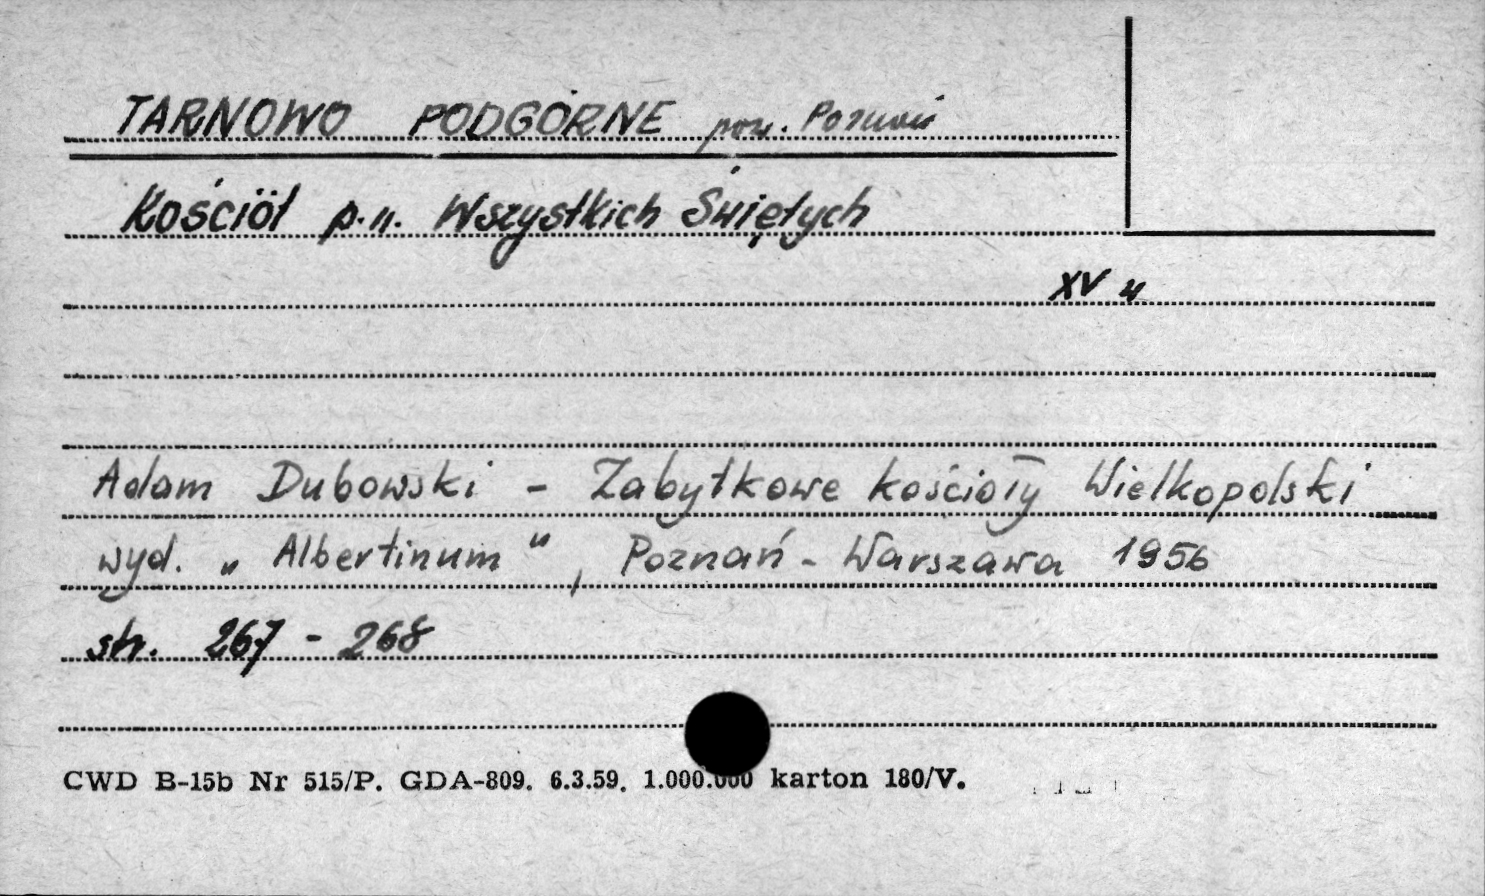 TARNOWO PODGÓRNE pow. Poznań
Kościół p.w. Wszystkich Świętych
XV w
Adam Dubowski - Zabytkowe kościoły Wielkopolski
wyd. „Albertinum", Poznań - Warszawa 1956
str. 267 - 268
CWD B-15b Nr 515/P. GDA-809. 6.3.59. 1.000.000 karton 180/V.